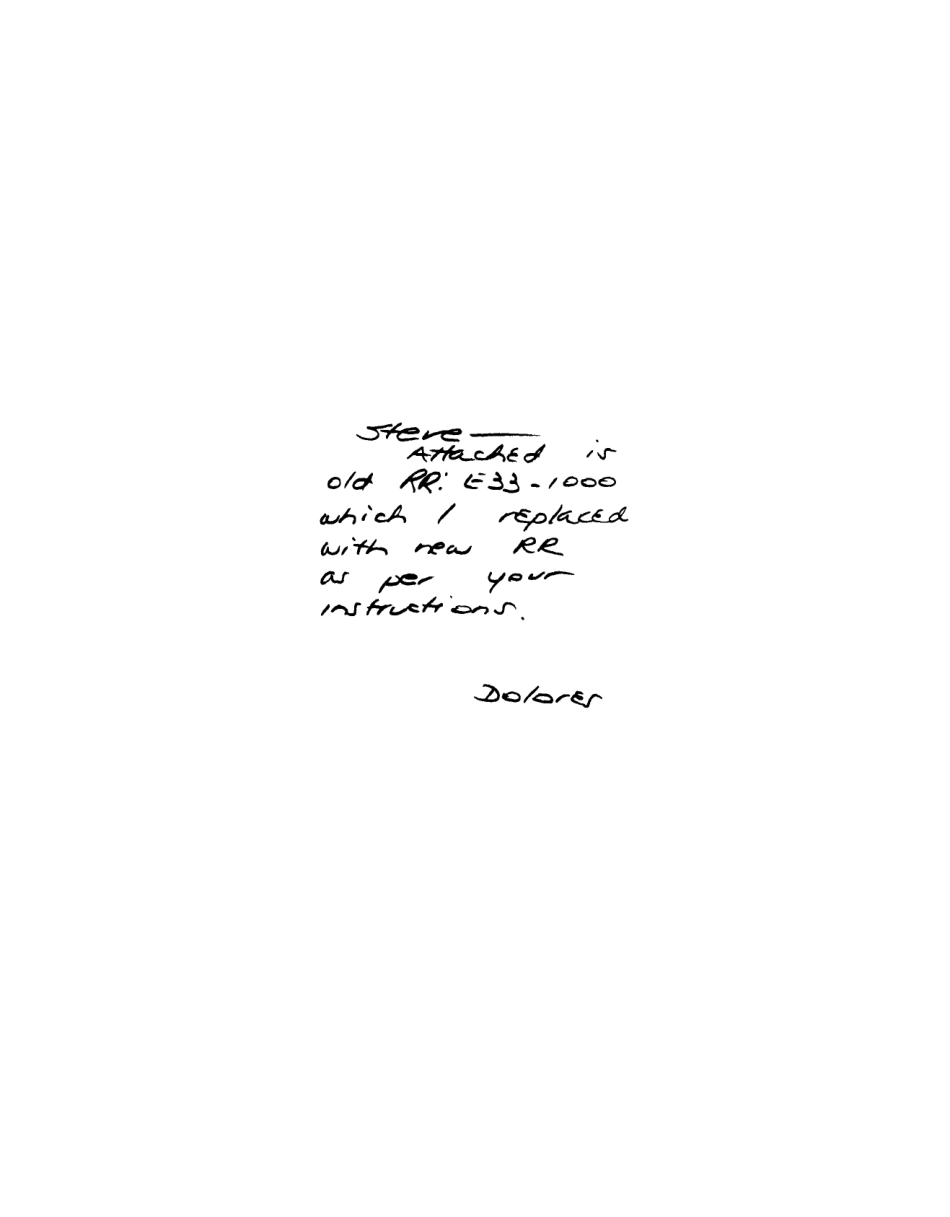 Steve —
Attached is
old RR: E33-1000
which I replaced
with new RR
as per your
instructions.
Dolores